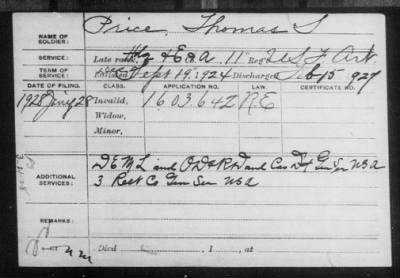 NAME OF SOLDIER: Price, Thomas S
SERVICE: Late rank, Hq & E & A. 11" Reg't U.S. F. Art.
Enlisted Sept 19, 1924 Discharged Feb 15 927
DATE OF FILING. CLASS. APPLICATION NO. LAW. CERTIFICATE NO.
1928 Invalid, 1603642 N.E
Widow,
Minor,
ADDITIONAL SERVICES: D E M L and and Gen Ser USA
3 Rect Co Gen Ser USA
REMARKS:
Died , 1 , at